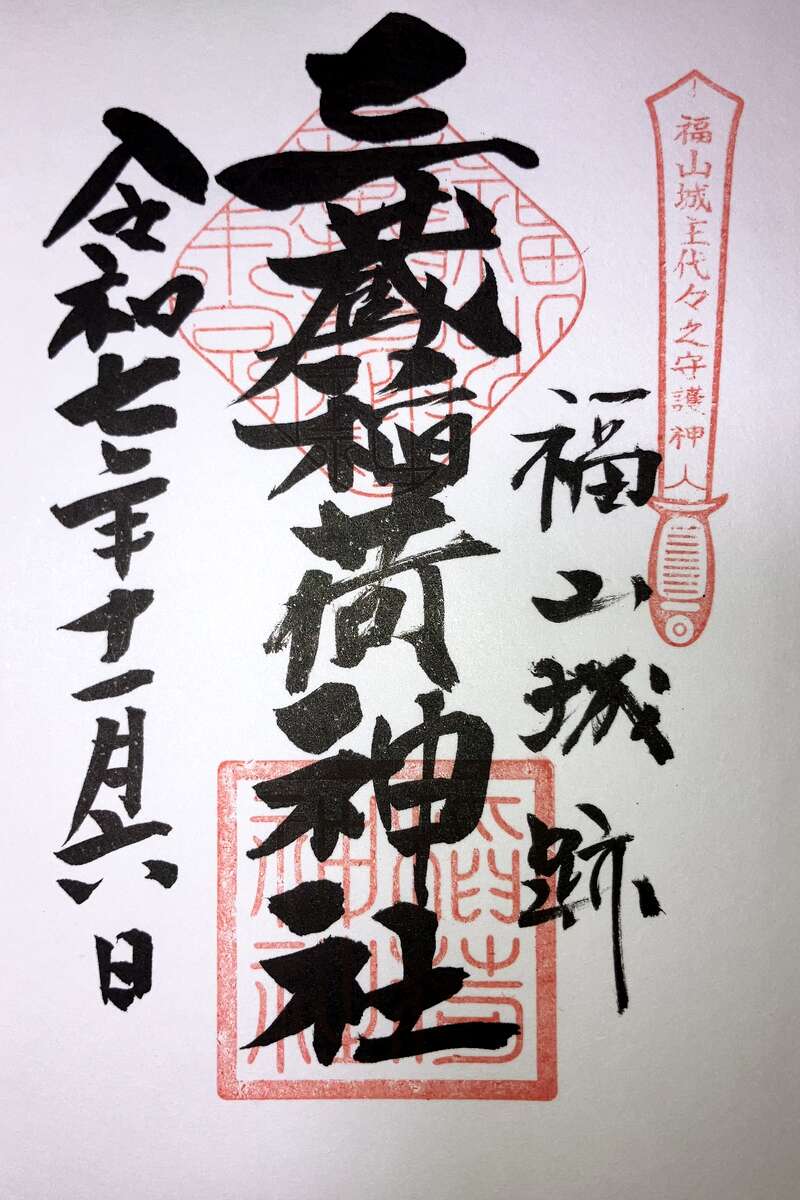 福山城主代々之守護神
福山城跡
三蔵稲荷神社
令和七年十一月六日
稲荷
神社